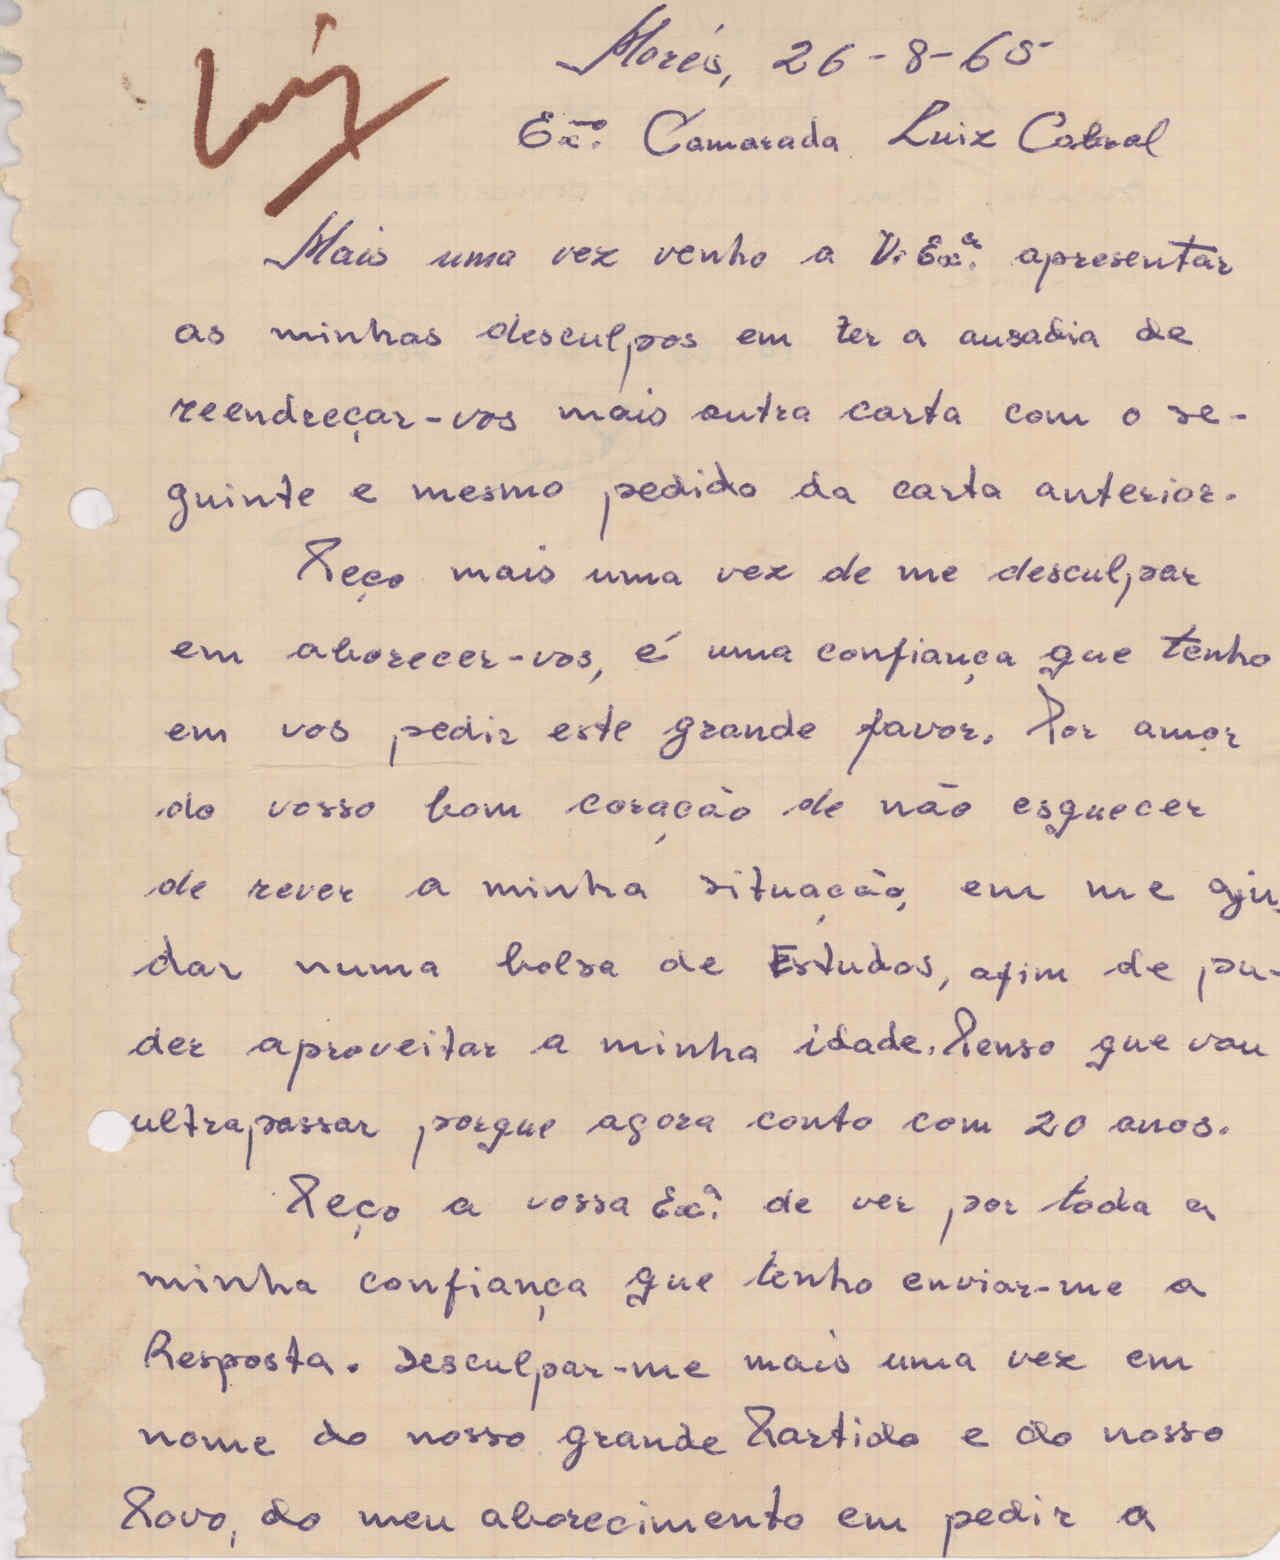 Luiz
Morés, 26-8-65
Exmo. Camarada Luiz Cabral
Mais uma vez venho a V. Exª. apresentar
as minhas desculpas em ter a ausadia de
reendreçar-vos mais outra carta com o se-
guinte e mesmo pedido da carta anterior.
Peço mais uma vez de me desculpar
em aborecer-vos, é uma confiança que tenho
em vos pedir este grande favor. Por amor
do vosso bom coração de não esquecer
de rever a minha situação, em me aju-
dar numa bolsa de Estudos, afim de pu-
der aproveitar a minha idade. Penso que vou
ultrapassar porque agora conto com 20 anos.
Peço a vossa Exª. de ver por toda a
minha confiança que tenho enviar-me a
Resposta. Desculpar-me mais uma vez em
nome do nosso grande Partido e do nosso
Povo, do meu aborecimento em pedir a